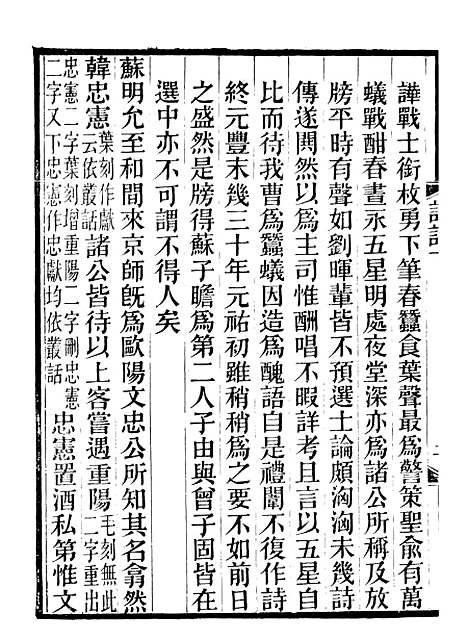 譁戰士銜枚勇下筆春蠶食葉聲最爲警策聖俞有萬
蟻戰酣春晝永五星明處夜堂深亦爲諸公所稱及放
牓平時有聲如劉暉輩皆不預選士論頗洶洶未幾詩
傳遂鬨然以爲主司惟酬唱不暇詳考且言以五星自
比而待我曹爲蠶蟻因造爲醜語自是禮闈不復作詩
終元豐末幾三十年元祐初雖稍稍爲之要不如前日
之盛然是牓得蘇子瞻爲第二人子由與曾子固皆在
選中亦不可謂不得人矣
蘇明允至和間來京師旣爲歐陽文忠公所知其名翕然
韓忠憲葉刻作獻云依叢話諸公皆待以上客嘗遇重陽毛刻無此二字重出
忠憲二字葉刻增重陽二字刪忠憲二字又下忠憲作忠獻均依叢話忠憲置酒私第惟文